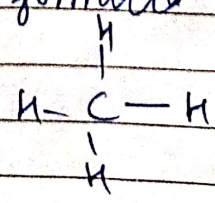 H
H - C - H
H